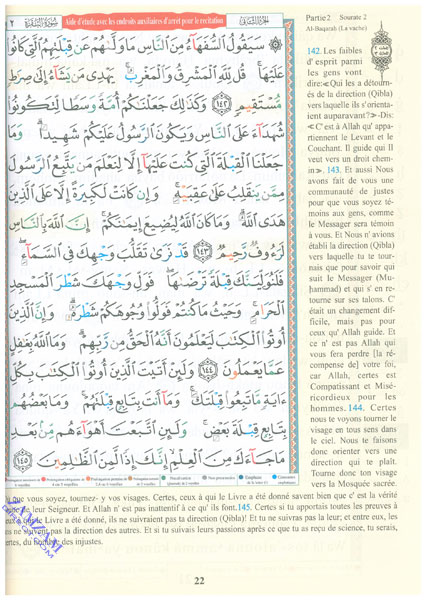 Partie 2 Sourate 2
Al-Baqarah (La vache)
Aide d'étude avec les endroits auxiliaires d'arrêt pour le recitation
سُورَةُ البَقَرَةِ
۞ سَيَقُولُ السُّفَهَاءُ مِنَ النَّاسِ مَا وَلَّىٰهُمْ عَن قِبْلَتِهِمُ الَّتِي كَانُوا
عَلَيْهَا ۚ قُل لِّلَّهِ الْمَشْرِقُ وَالْمَغْرِبُ ۚ يَهْدِي مَن يَشَاءُ إِلَىٰ صِرَٰطٍ
مُّسْتَقِيمٍ ١٤٢ وَكَذَٰلِكَ جَعَلْنَٰكُمْ أُمَّةً وَسَطًا لِّتَكُونُوا
شُهَدَاءَ عَلَى النَّاسِ وَيَكُونَ الرَّسُولُ عَلَيْكُمْ شَهِيدًا ۗ وَمَا
جَعَلْنَا الْقِبْلَةَ الَّتِي كُنتَ عَلَيْهَا إِلَّا لِنَعْلَمَ مَن يَتَّبِعُ الرَّسُولَ
مِمَّن يَنقَلِبُ عَلَىٰ عَقِبَيْهِ ۚ وَإِن كَانَتْ لَكَبِيرَةً إِلَّا عَلَى الَّذِينَ
هَدَى اللَّهُ ۗ وَمَا كَانَ اللَّهُ لِيُضِيعَ إِيمَٰنَكُمْ ۚ إِنَّ اللَّهَ بِالنَّاسِ
لَرَءُوفٌ رَّحِيمٌ ١٤٣ قَدْ نَرَىٰ تَقَلُّبَ وَجْهِكَ فِي السَّمَاءِ ۖ
فَلَنُوَلِّيَنَّكَ قِبْلَةً تَرْضَىٰهَا ۚ فَوَلِّ وَجْهَكَ شَطْرَ الْمَسْجِدِ
الْحَرَامِ ۚ وَحَيْثُ مَا كُنتُمْ فَوَلُّوا وُجُوهَكُمْ شَطْرَهُ ۗ وَإِنَّ الَّذِينَ
أُوتُوا الْكِتَٰبَ لَيَعْلَمُونَ أَنَّهُ الْحَقُّ مِن رَّبِّهِمْ ۗ وَمَا اللَّهُ بِغَٰفِلٍ
عَمَّا يَعْمَلُونَ ١٤٤ وَلَئِنْ أَتَيْتَ الَّذِينَ أُوتُوا الْكِتَٰبَ بِكُلِّ
ءَايَةٍ مَّا تَبِعُوا قِبْلَتَكَ ۚ وَمَا أَنتَ بِتَابِعٍ قِبْلَتَهُمْ ۚ وَمَا بَعْضُهُم
بِتَابِعٍ قِبْلَةَ بَعْضٍ ۚ وَلَئِنِ اتَّبَعْتَ أَهْوَاءَهُم مِّن بَعْدِ
مَا جَاءَكَ مِنَ الْعِلْمِ ۙ إِنَّكَ إِذًا لَّمِنَ الظَّٰلِمِينَ ١٤٥
142. Les faibles
d' esprit parmi
les gens vont
dire:«Qui les a détour-
nés de la direction (Qibla)
vers laquelle ils s'orienta-
ient auparavant?» -Dis:
«C' est à Allah qu' appa-
rtiennent le Levant et le
Couchant. Il guide qui Il
veut vers un droit chem-
in». 143. Et aussi Nous
avons fait de vous une
communauté de justes
pour que vous soyez té-
moins aux gens, comme
le Messager sera témoin
à vous. Et Nous n' avions
établi la direction (Qibla)
vers laquelle tu te tour-
nais que pour savoir qui
suit le Messager (Mu-
ḥammad) et qui s' en re-
tourne sur ses talons. C'
était un changement dif-
ficile, mais pas pour
ceux qu' Allah guide. Et
ce n' est pas Allah qui
vous fera perdre [la ré-
compense de] votre foi,
car Allah, certes est
Compatissant et Misé-
ricordieux pour les
hommes. 144. Certes
nous te voyons tourner le
visage en tous sens dans
le ciel. Nous te faisons
donc orienter vers une
direction qui te plaît.
Tourne donc ton visage
vers la Mosquée sacrée.
que vous soyez, tournez- y vos visages. Certes, ceux à qui le Livre a été donné savent bien que c' est la vérité
de leur Seigneur. Et Allah n' est pas inattentif à ce qu' ils font.145. Certes si tu apportais toutes les preuves à
ceux le Livre a été donné, ils ne suivraient pas ta direction (Qibla)! Et tu ne suivras pas la leur; et entre eux, les
ne suivent pas la direction des autres. Et si tu suivais leurs passions après ce que tu as reçu de science, tu serais,
certes, du nombre des injustes.
22